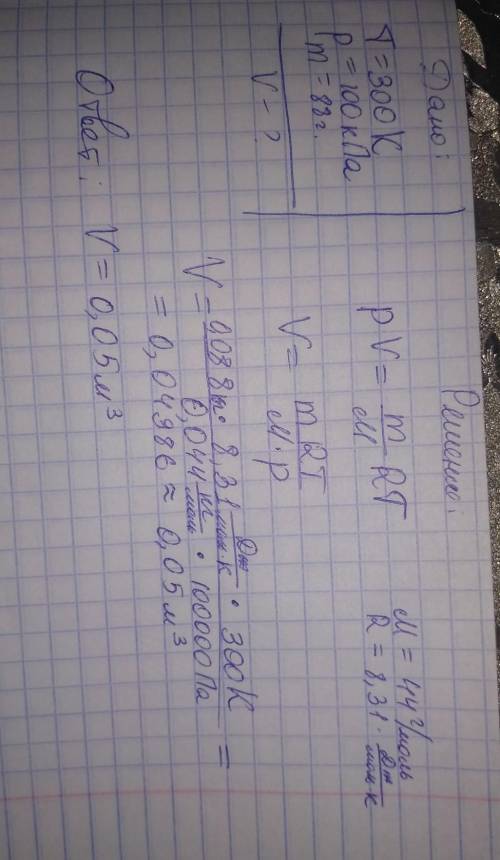 Дано:
T = 300К
p = 100кПа
m = 88г.
V - ?
Решение:
pV = m/M RT
M = 44 г/моль
R = 8,31 · Дж/моль·К
V = mRT/M·p
V = 0,088кг · 8,31 Дж/моль·К · 300К / 0,044 кг/моль · 100000Па =
= 0,04986 ≈ 0,05м³
Ответ: V = 0,05м³